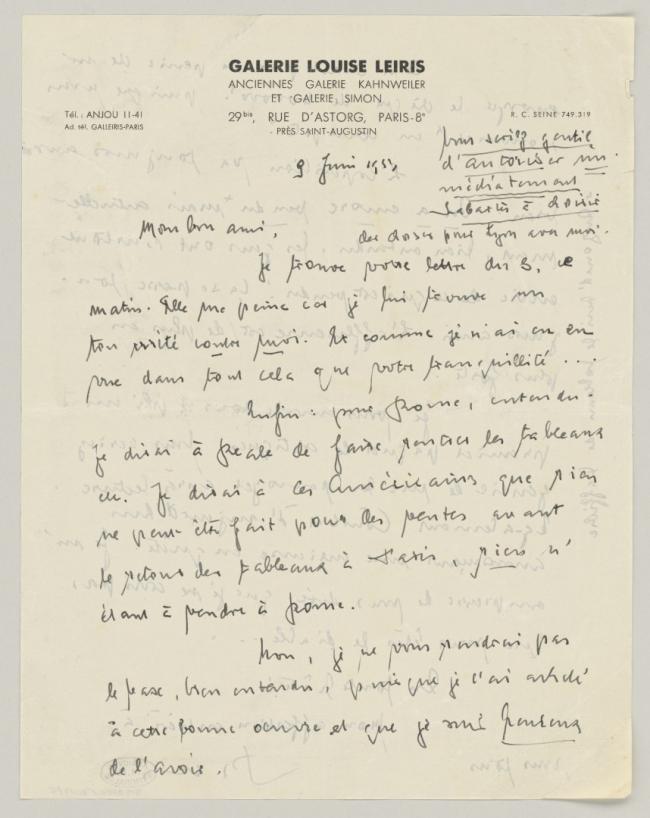 GALERIE LOUISE LEIRIS
ANCIENNES GALERIE KAHNWEILER
ET GALERIE SIMON
Tél.: ANJOU 11-41
Ad. tél. GALLEIRIS-PARIS
29bis, RUE D'ASTORG, PARIS-8e
- PRÈS SAINT-AUGUSTIN
R. C. SEINE 749.319
9 Juin
vous seriez gentil
d'autoriser im-
médiatement
Sabartés à choisir
des choses pour Lyon avec moi.
Mon bon ami,
Je trouve votre lettre du 3, ce
matin. Elle me peine car je lui trouve un
ton irrité contre moi. Et comme je n'ai eu en
vue dans tout cela que votre tranquillité ...
Enfin: pour Rome, entendu.
Je dirai à de faire rentrer les tableaux
ici. Je dirai à ces Américains que rien
ne peut être fait pour des ventes avant
le retour des tableaux à Paris, rien n'
étant à vendre à Rome.
Non, je ne vous rendrai pas
le vase, bien entendu, puisque je l'ai
à cette bonne oeuvre et que je suis heureux
de l'avoir.